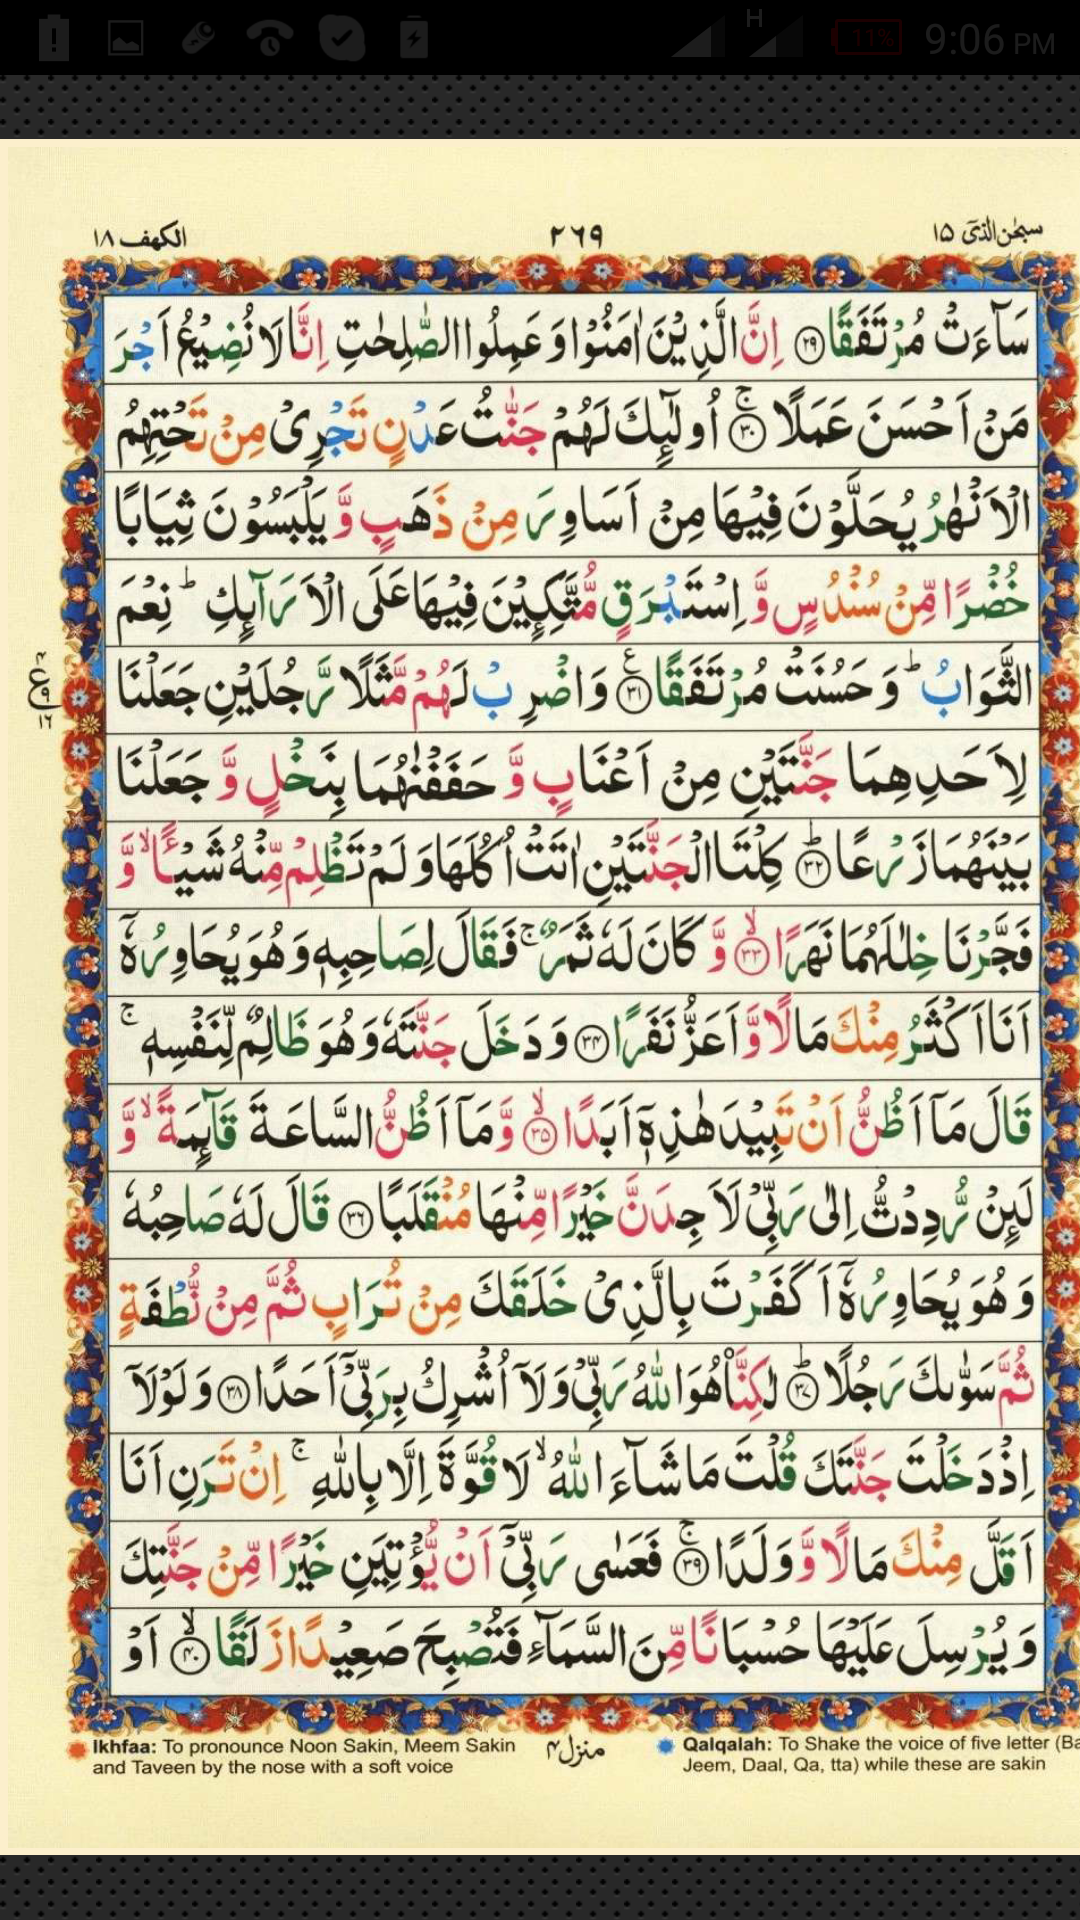 H 11% 9:06 PM
سبحٰن الذیۤ ١٥ ٢٦٩ الکھف ١٨
سَآءَتْ مُرْتَفَقًا ﴿٢٩﴾ اِنَّ الَّذِيْنَ اٰمَنُوْا وَعَمِلُوا الصّٰلِحٰتِ اِنَّا لَا نُضِيْعُ اَجْرَ
مَنْ اَحْسَنَ عَمَلًا ۚ﴿٣٠﴾ اُولٰٓئِكَ لَهُمْ جَنّٰتُ عَدْنٍ تَجْرِىْ مِنْ تَحْتِهِمُ
الْاَنْهٰرُ يُحَلَّوْنَ فِيْهَا مِنْ اَسَاوِرَ مِنْ ذَهَبٍ وَّيَلْبَسُوْنَ ثِيَابًا
خُضْرًا مِّنْ سُنْدُسٍ وَّاِسْتَبْرَقٍ مُّتَّكِـِٕيْنَ فِيْهَا عَلَى الْاَرَآئِكِ ؕ نِعْمَ
الثَّوَابُ ؕ وَحَسُنَتْ مُرْتَفَقًا ﴿٣١﴾ ع وَاضْرِبْ لَهُمْ مَّثَلًا رَّجُلَيْنِ جَعَلْنَا
٤ ع ٩ ١٦
لِاَحَدِهِمَا جَنَّتَيْنِ مِنْ اَعْنَابٍ وَّحَفَفْنٰهُمَا بِنَخْلٍ وَّجَعَلْنَا
بَيْنَهُمَا زَرْعًا ؕ﴿٣٢﴾ كِلْتَا الْجَنَّتَيْنِ اٰتَتْ اُكُلَهَا وَلَمْ تَظْلِمْ مِّنْهُ شَيْـًٔا ۙ وَّ
فَجَّرْنَا خِلٰلَهُمَا نَهَرًا ۙ﴿٣٣﴾ وَّكَانَ لَهٗ ثَمَرٌ ۚ فَقَالَ لِصَاحِبِهٖ وَهُوَ يُحَاوِرُهٗۤ
اَنَا اَكْثَرُ مِنْكَ مَالًا وَّاَعَزُّ نَفَرًا ﴿٣٤﴾ وَدَخَلَ جَنَّتَهٗ وَهُوَ ظَالِمٌ لِّنَفْسِهٖ ۚ
قَالَ مَاۤ اَظُنُّ اَنْ تَبِيْدَ هٰذِهٖۤ اَبَدًا ۙ﴿٣٥﴾ وَّمَاۤ اَظُنُّ السَّاعَةَ قَآئِمَةً ۙ وَّ
لَئِنْ رُّدِدْتُّ اِلٰى رَبِّىْ لَاَجِدَنَّ خَيْرًا مِّنْهَا مُنْقَلَبًا ﴿٣٦﴾ قَالَ لَهٗ صَاحِبُهٗ
وَهُوَ يُحَاوِرُهٗۤ اَكَفَرْتَ بِالَّذِىْ خَلَقَكَ مِنْ تُرَابٍ ثُمَّ مِنْ نُّطْفَةٍ
ثُمَّ سَوّٰٮكَ رَجُلًا ؕ﴿٣٧﴾ لٰكِنَّا۟ هُوَ اللّٰهُ رَبِّىْ وَلَاۤ اُشْرِكُ بِرَبِّىْۤ اَحَدًا ﴿٣٨﴾ وَلَوْلَاۤ
اِذْ دَخَلْتَ جَنَّتَكَ قُلْتَ مَا شَآءَ اللّٰهُ ۙ لَا قُوَّةَ اِلَّا بِاللّٰهِ ۚ اِنْ تَرَنِ اَنَا
اَقَلَّ مِنْكَ مَالًا وَّوَلَدًا ۚ﴿٣٩﴾ فَعَسٰى رَبِّىْۤ اَنْ يُّؤْتِيَنِ خَيْرًا مِّنْ جَنَّتِكَ
وَيُرْسِلَ عَلَيْهَا حُسْبَانًا مِّنَ السَّمَآءِ فَتُصْبِحَ صَعِيْدًا زَلَقًا ۙ﴿٤٠﴾ اَوْ
Ikhfaa: To pronounce Noon Sakin, Meem Sakin
and Taveen by the nose with a soft voice
منزل ٤
Qalqalah: To Shake the voice of five letter (Ba
Jeem, Daal, Qa, tta) while these are sakin